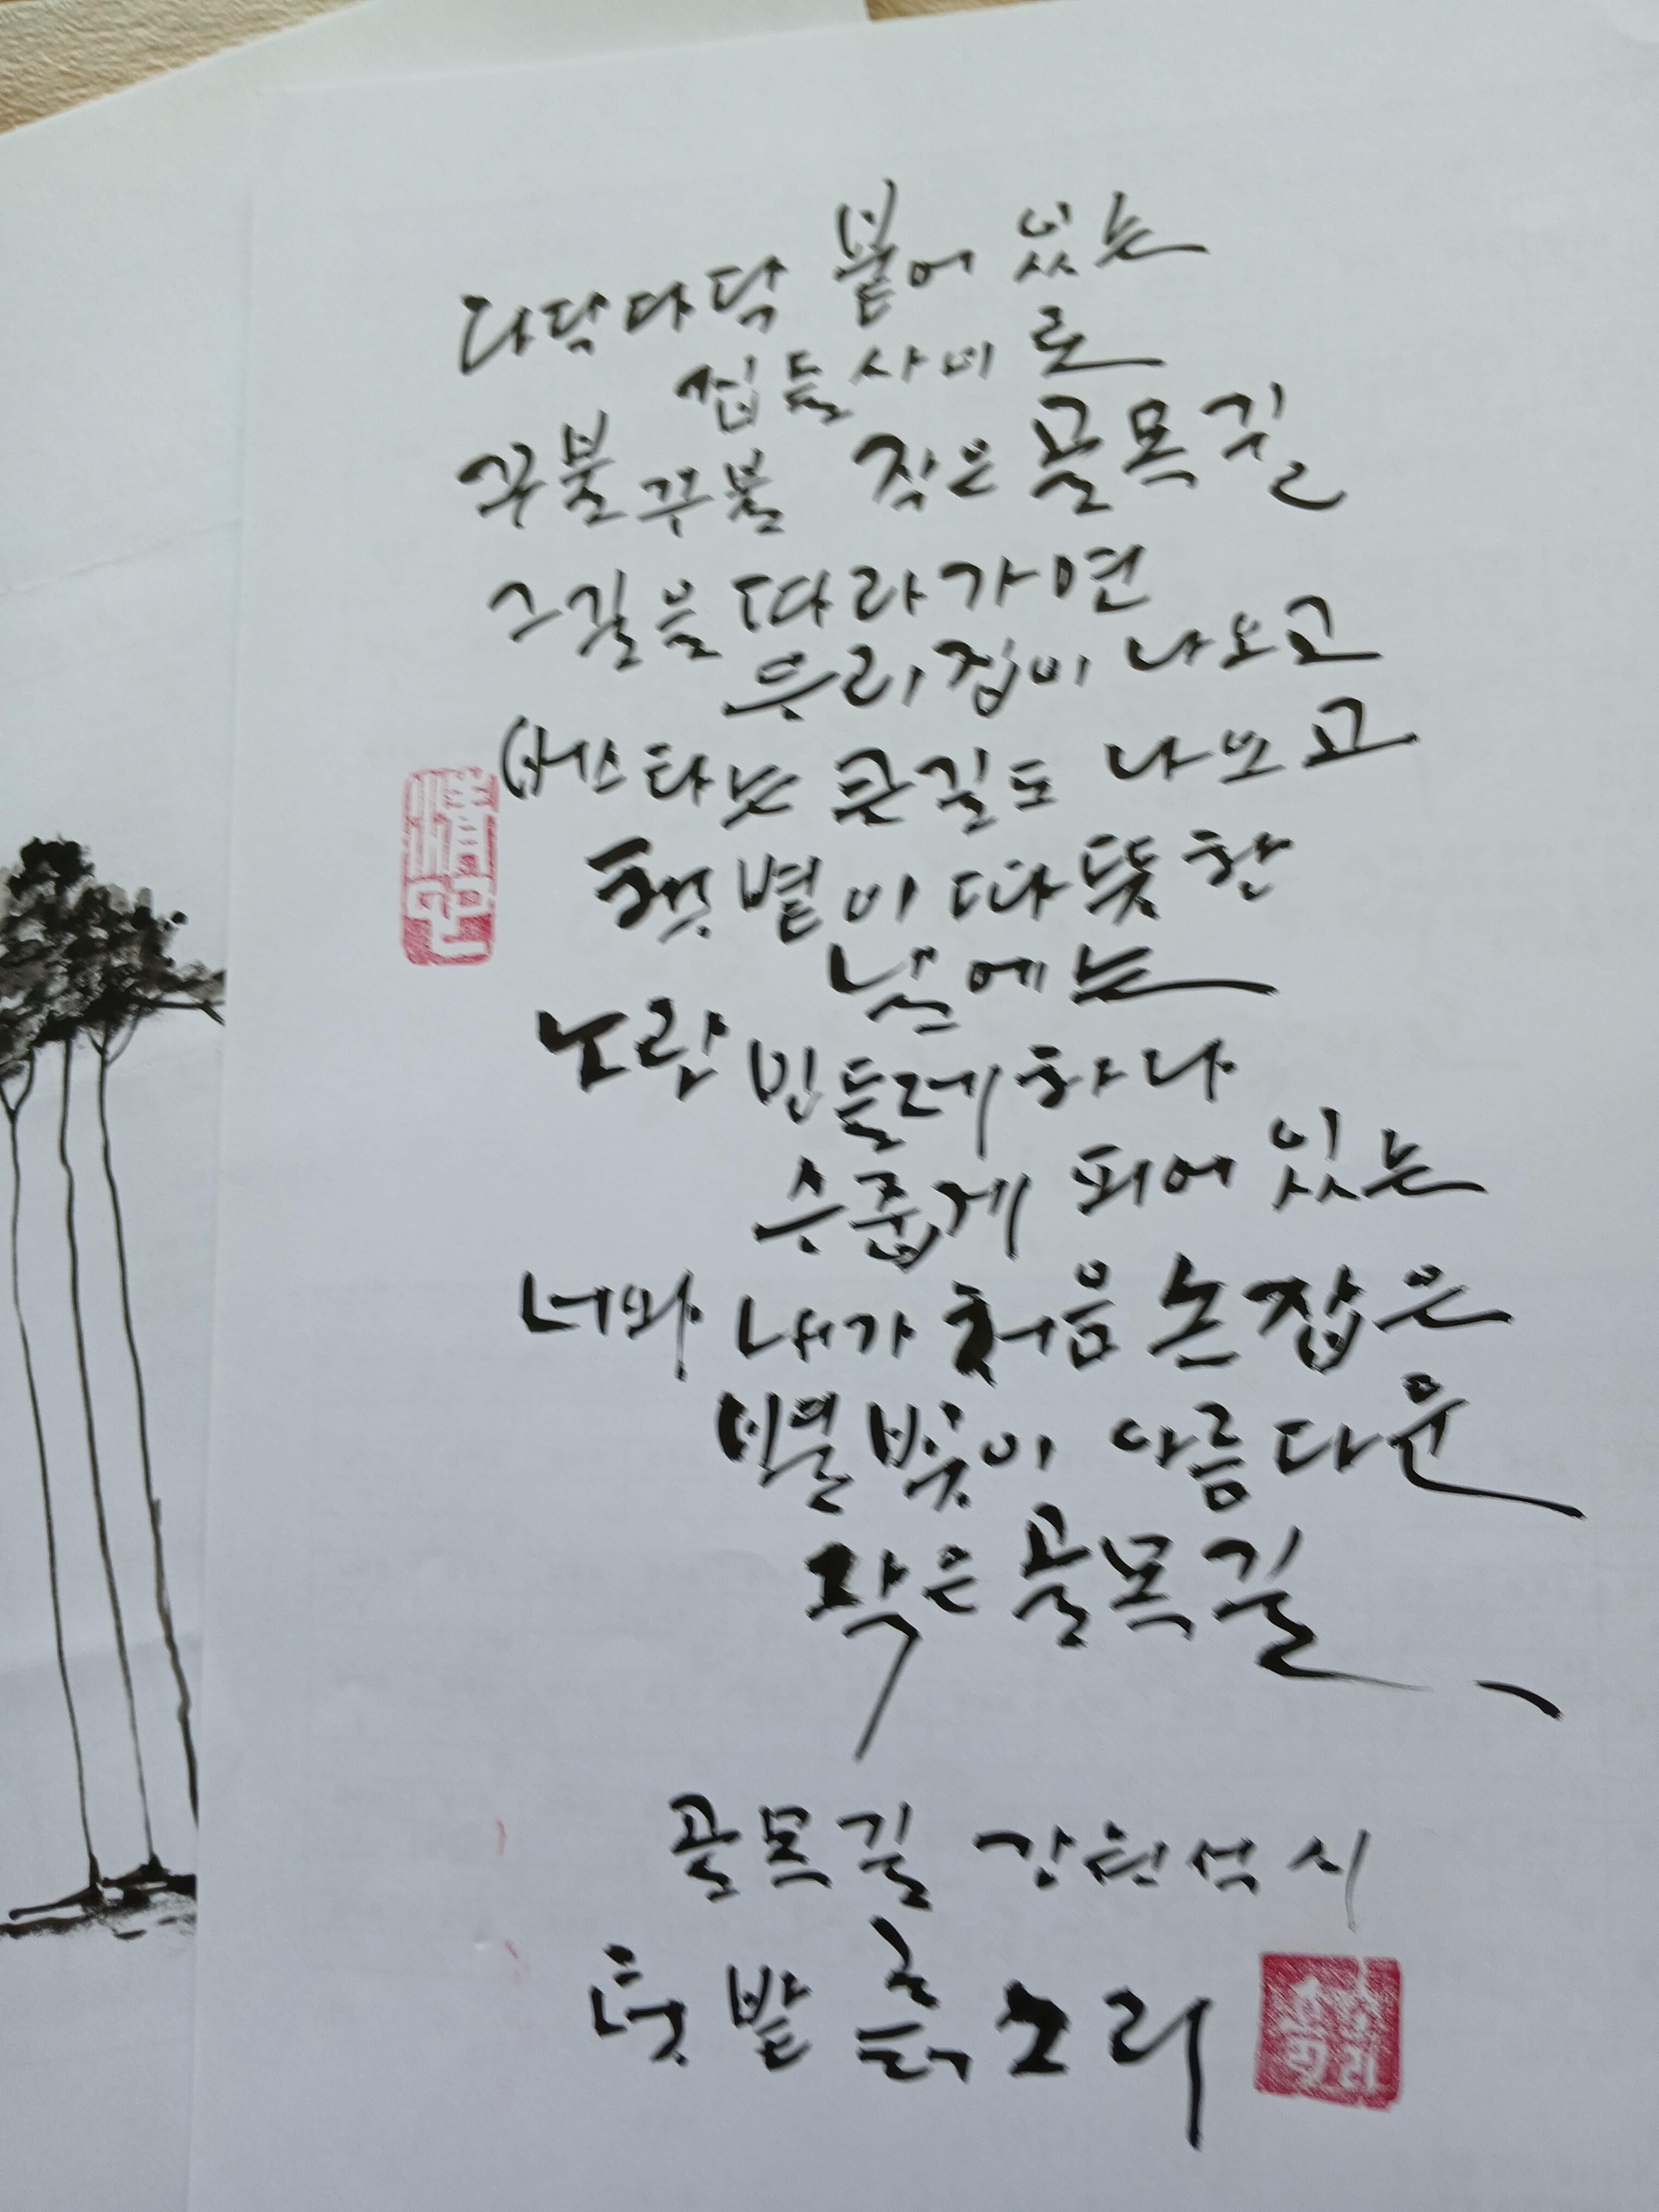 다닥다닥 붙어 있는
집들사이로
꾸불꾸불 작은 골목길
그길을 따라가면
우리집이 나오고
버스타는 큰길도 나오고
햇볕이 따뜻한
날에는
노란 민들레하나
수줍게 피어 있는
너와 내가 처음 손잡은
별빛이 아름다운
작은 골목길
골목길 강현석 시
텃밭 흙소리